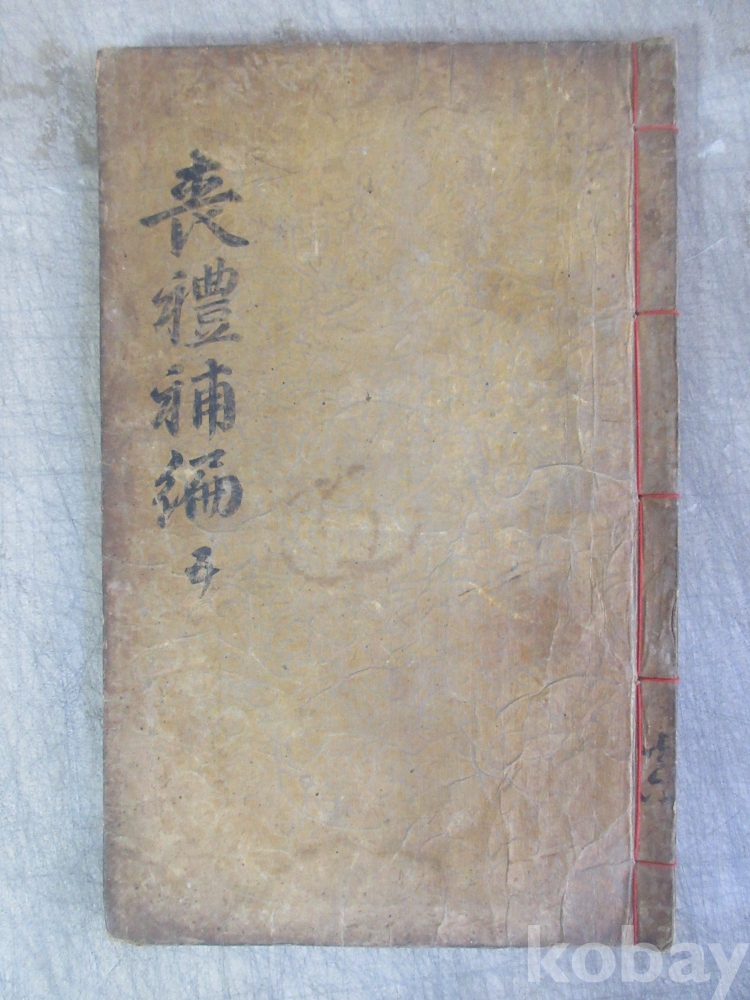 喪禮補編 五
共六
kobay